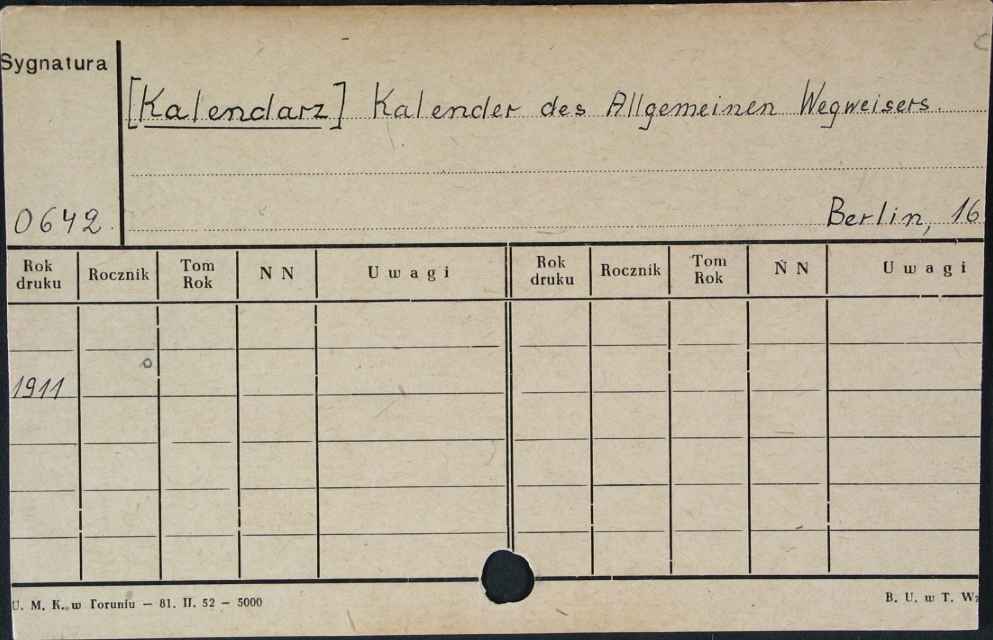 Sygnatura
[Kalendarz] Kalender des Allgemeinen Wegweisers.
0642
Berlin, 16
Rok druku Rocznik Tom Rok N N Uwagi Rok druku Rocznik Tom Rok N N Uwagi
1911
U. M. K. w Toruniu — 81. II. 52 — 5000
B. U. w T. Wz